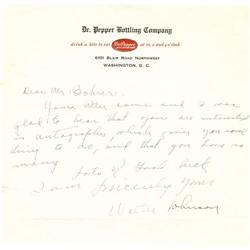 Dr. Pepper Bottling Company
drink a bite to eat Dr. Pepper at 10, 2 and 4 o'clock
6101 BLAIR ROAD NORTHWEST
WASHINGTON, D. C.
Dear Mr
Your letter came and I was
glad to hear that you are interested
in autographs, which gives you some
thing to do, and that you have so
many
Lots of Good luck
I am Sincerely Yours
Walter Johnson